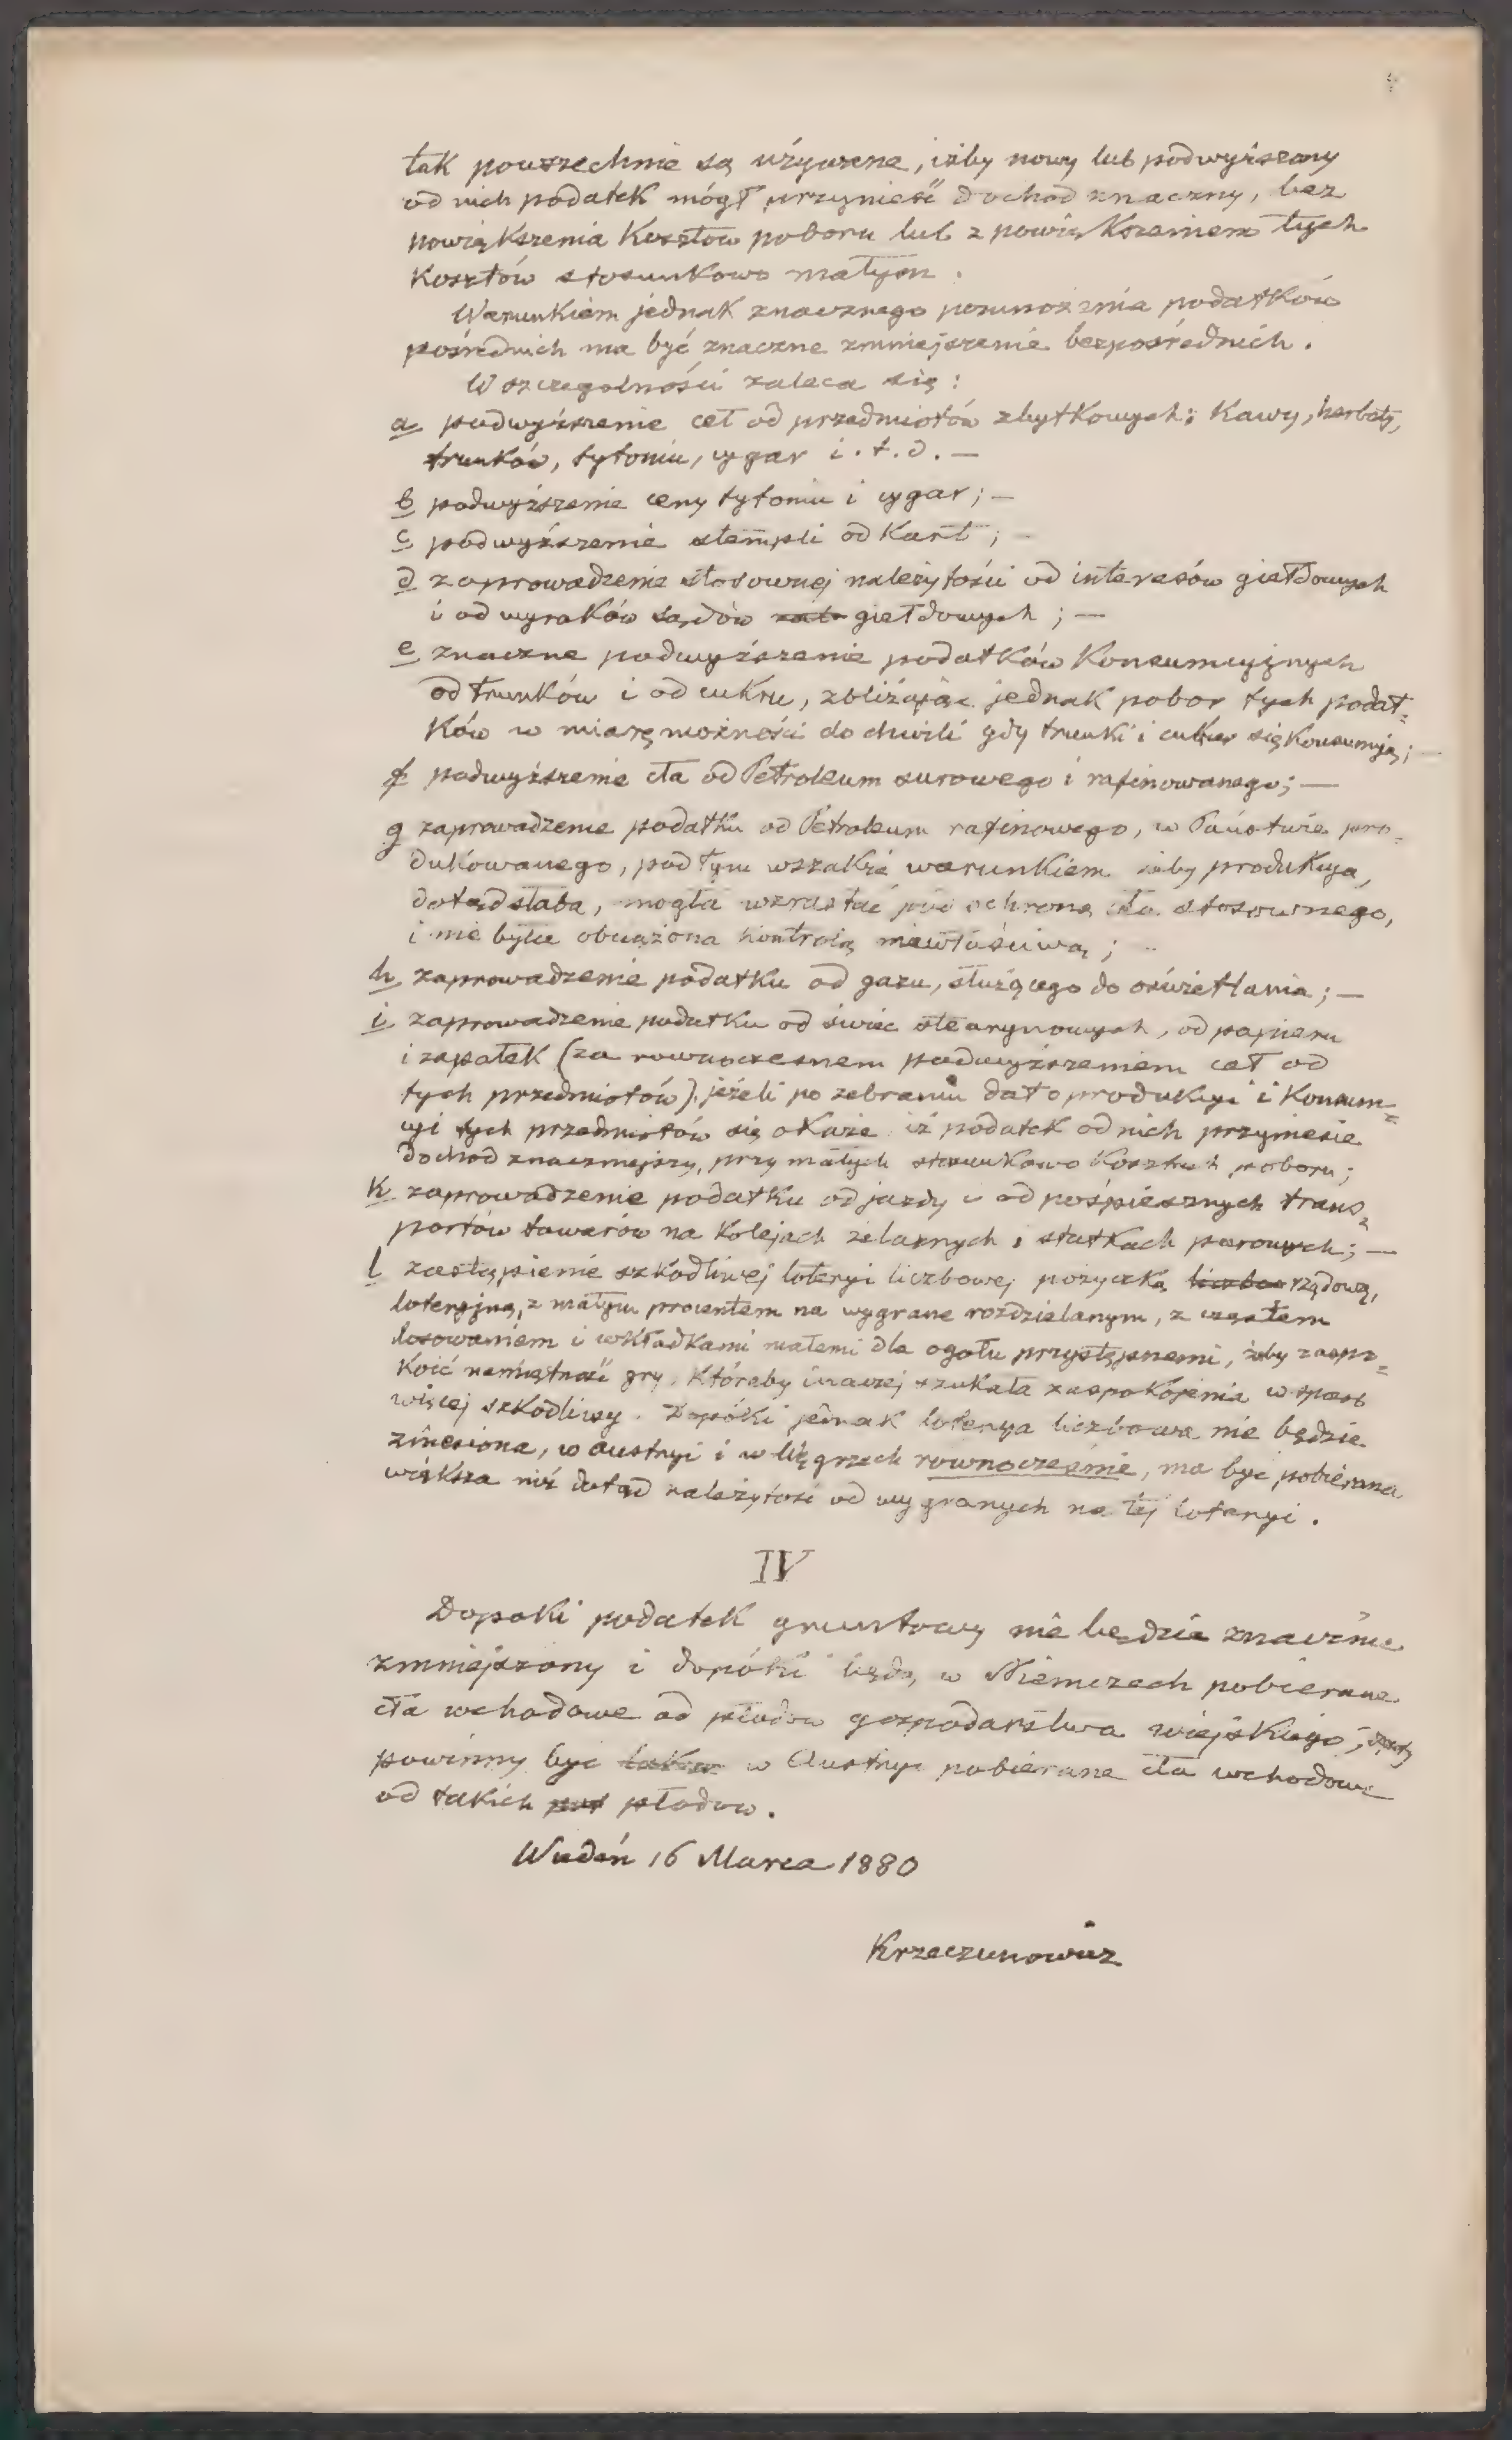 tak powszechnie są używane, iżby nowy lub podwyższony
od nich podatek mógł przynieść dochod znaczny, bez
powiększenia Kosztow poboru lub z powiększeniem tych
Kosztów stosunkowo małym.
Warunkiem jednak znacznego pomnożenia podatków
pośrednich ma być znaczne zmniejszenie bezpośrednich.
W szczegolności zaleca się:
a podwyższenie ceł od przedmiotów zbytkowych; Kawy, herbaty,
trunków, tytoniu, cygar i. t. d. —
b podwyższenie ceny tytoniu i cygar; —
c podwyższenie stempli od Kart; —
d zaprowadzenie stosownej należytości od interesów giełdowych
i od wyroków sądów giełdowych; —
e znaczne podwyższenie podatków Konsumcyjnych
od trunków i od cukru, zbliżając jednak pobor tych podat=
ków w miarę możności do chwili gdy trunki i cukier się Konsumują; —
f podwyższenie cła od Petroleum surowego i rafinowanego; —
g zaprowadzenie podatku od Petroleum rafinowego, w Państwie pro=
dukowanego, pod tym wszakże warunkiem żeby produkcya,
dotąd słaba, mogła wzrastać pod ochroną cła stosownego,
i nie była obciążona kontrolą niewłaściwą; —
h zaprowadzenie podatku od gazu, służącego do oświetlania; —
i zaprowadzenie podatku od świec stearynowych, od papieru
i zapałek (za rownoczesnem podwyższeniem ceł od
tych przedmiotów) jeżeli po zebraniu dat o produkcyi i Konsum=
cyi tych przedmiotów się okaże iż podatek od nich przyniesie
dochod znaczniejszy, przy małych stosunkowo Kosztach poboru;
k zaprowadzenie podatku od jazdy i od pośpiesznych trans=
portów towarów na Kolejach żelaznych i statkach parowych; —
l zastąpienie szkodliwej loteryi liczbowej pożyczką rządową,
loteryjną, z małym procentem na wygrane rozdzielanym, z częstem
losowaniem i wkładkami małemi dla ogołu przystępnemi, żeby zaspo=
Koić namiętność gry, Któraby inaczej szukała zaspokojenia w sposob
więcej szkodliwy. Dopóki jednak loterya liczbowa nie będzie
zniesiona, w Austryi i w Węgrzech rownocześnie, ma być pobierana
większa niż dotąd należytość od wygranych na tej loteryi.
IV
Dopoki podatek gruntowy nie będzie znacznie
zmniejszony i dopóki będą w Niemczech pobierane
cła wchodowe od płodow gospodarstwa wiejskiego,
powinny być w Austryi pobierane cła wchodowe
od takich płodow.
Wiedeń 16 Marca 1880
Krzeczunowicz